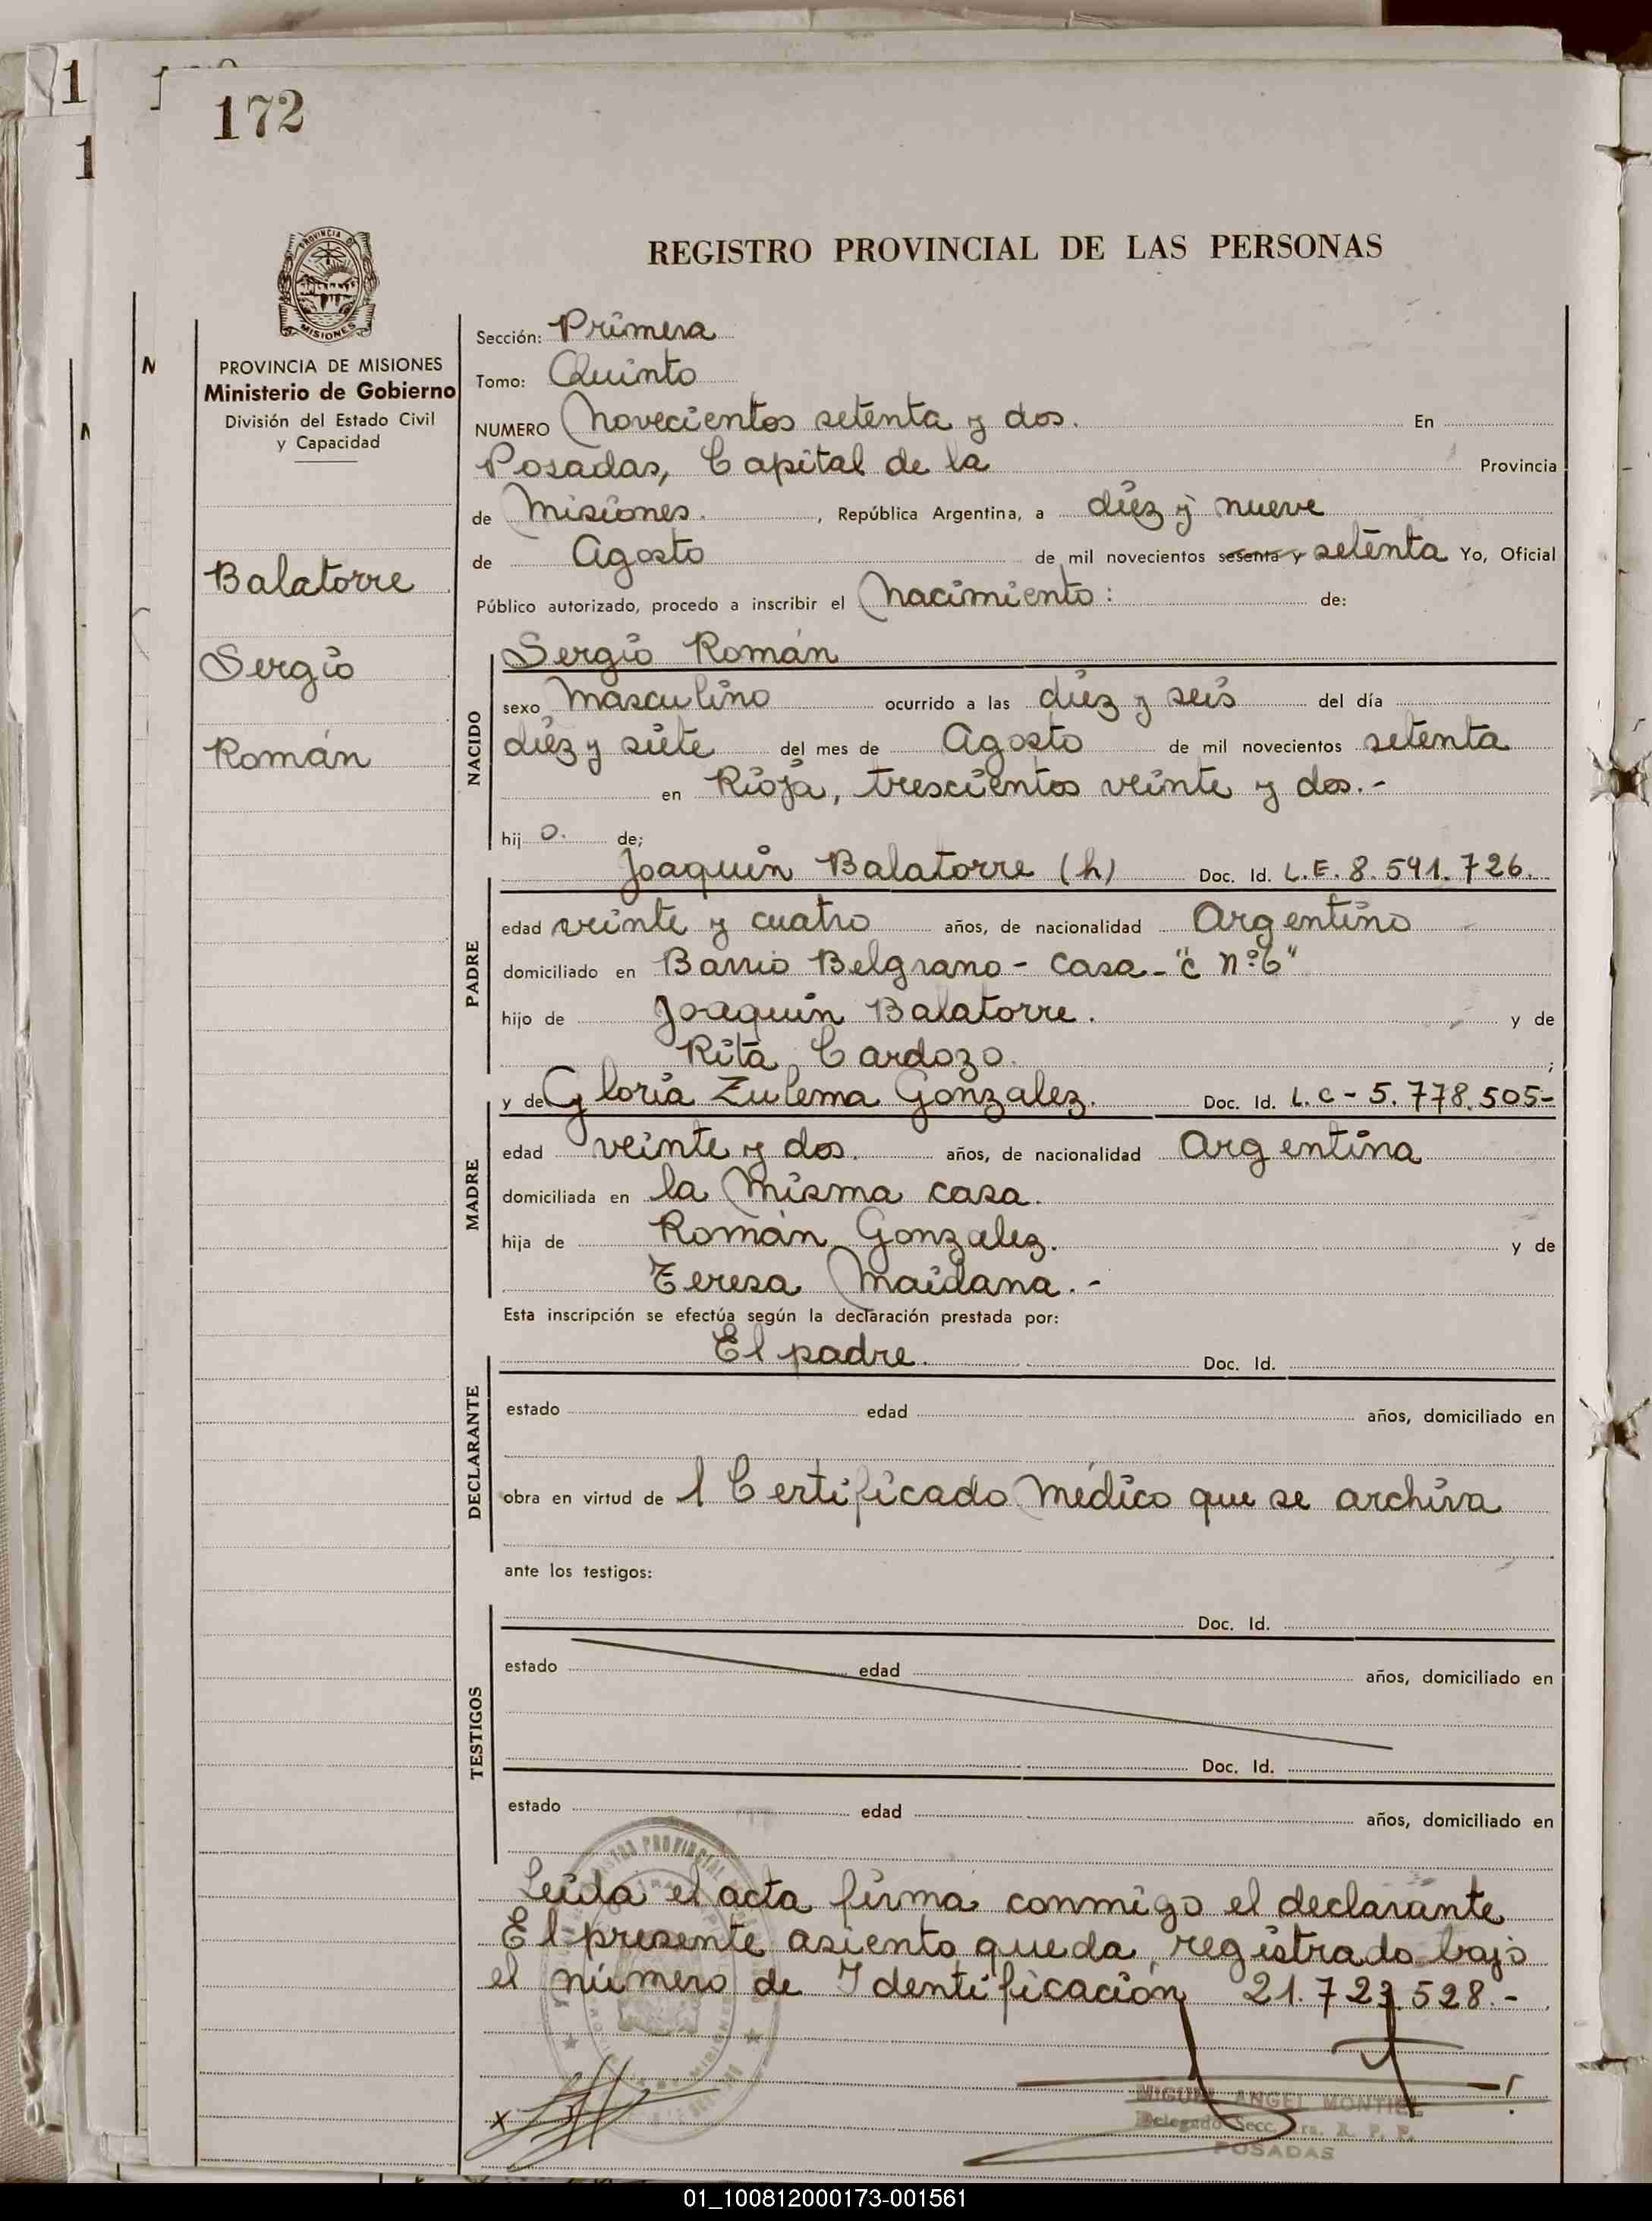 172
REGISTRO PROVINCIAL DE LAS PERSONAS
PROVINCIA DE
MISIONES
PROVINCIA DE MISIONES
Ministerio de Gobierno
División del Estado Civil
y Capacidad
Balatorre
Sergio
Román
Sección: Primera
Tomo: Quinto
NUMERO Novecientos setenta y dos. En
Posadas, Capital de la Provincia
de Misiones. , República Argentina, a diez y nueve
de Agosto de mil novecientos sesenta y setenta Yo, Oficial
Público autorizado, procedo a inscribir el Nacimiento: de:
NACIDO
Sergio Román
sexo Masculino ocurrido a las diez y seis del día
diez y siete del mes de Agosto de mil novecientos setenta
en Rioja, trescientos veinte y dos.-
hij o. de;
PADRE
Joaquín Balatorre (h) Doc. Id. L.E. 8.591.726.
edad veinte y cuatro años, de nacionalidad Argentino
domiciliado en Barrio Belgrano - Casa - "C nº 6"
hijo de Joaquín Balatorre. y de
Rita Cardozo. ;
MADRE
y de Gloria Zulema Gonzalez. Doc. Id. L.C - 5.778.505-
edad veinte y dos. años, de nacionalidad Argentina
domiciliada en la Misma casa.
hija de Román Gonzalez. y de
Teresa Maidana.-
Esta inscripción se efectúa según la declaración prestada por:
DECLARANTE
El padre. Doc. Id.
estado edad años, domiciliado en
obra en virtud de 1 Certificado Médico que se archiva
ante los testigos:
TESTIGOS
Doc. Id.
estado edad años, domiciliado en
Doc. Id.
estado edad años, domiciliado en
Leída el acta firma conmigo el declarante
El presente asiento queda registrado bajo
el número de Identificación 21.723.528.-
MIGUEL ANGEL MONTIEL
Delegado Secc. 1ra. R. P. P.
POSADAS
01_100812000173-001561